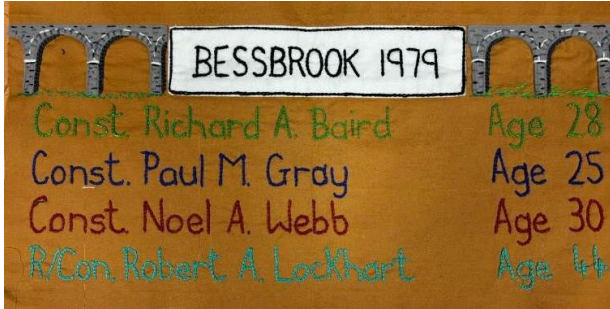 BESSBROOK 1979
Const. Richard A. Baird Age 28
Const. Paul M. Gray Age 25
Const. Noel A. Webb Age 30
R/Con. Robert A. Lockhart Age 44